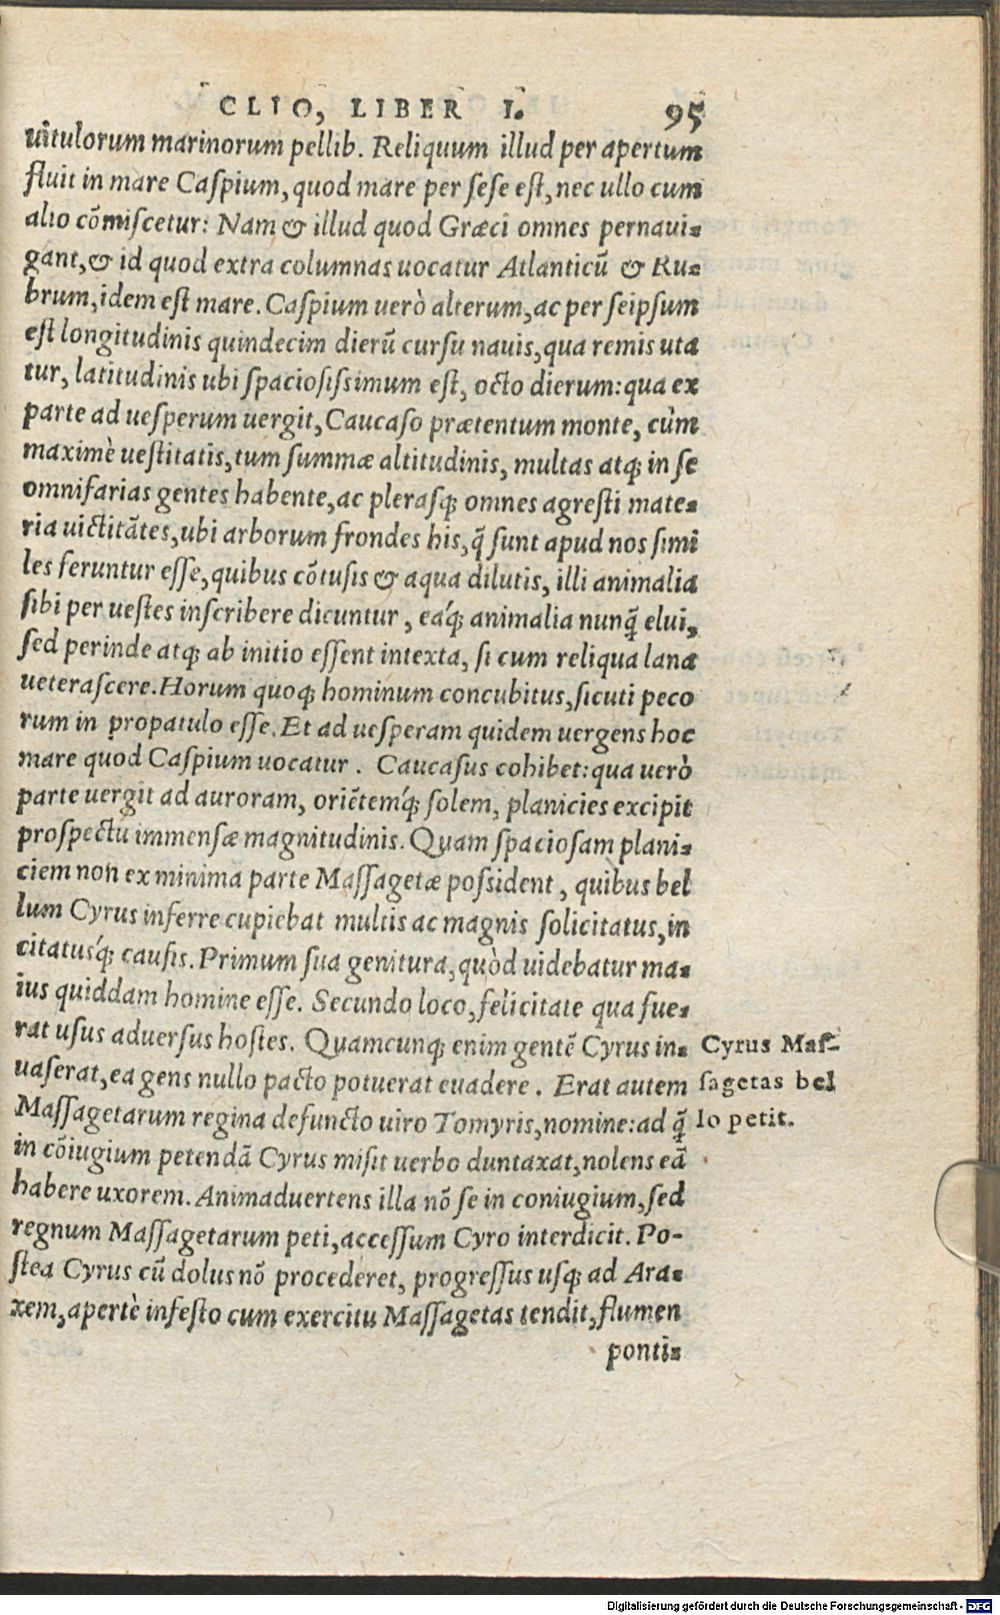 CLIO, LIBER I. 95
uitulorum marinorum pellib. Reliquum illud per apertum
fluit in mare Caſpium, quod mare per ſeſe eſt, nec ullo cum
alio cõmiſcetur: Nam & illud quod Græci omnes pernaui-
gant, & id quod extra columnas uocatur Atlanticũ & Ru-
brum, idem eſt mare. Caſpium uerò alterum, ac per ſeipſum
eſt longitudinis quindecim dierũ curſu nauis, qua remis uta
tur, latitudinis ubi ſpaciosiſsimum eſt, octo dierum: qua ex
parte ad ueſperum uergit, Caucaſo prætentum monte, cùm
maximè ueſtitatis, tum ſummæ altitudinis, multas atq; in ſe
omnifarias gentes habente, ac pleraſq; omnes agreſti mate-
ria uictitãtes, ubi arborum frondes his, q̃ ſunt apud nos ſimi
les feruntur eſſe, quibus cõtuſis & aqua dilutis, illi animalia
ſibi per ueſtes inſcribere dicuntur, eáq; animalia nunq̃ elui,
ſed perinde atq; ab initio eſſent intexta, ſi cum reliqua lana
ueteraſcere. Horum quoq; hominum concubitus, ſicuti peco
rum in propatulo eſſe. Et ad ueſperam quidem uergens hoc
mare quod Caſpium uocatur. Caucaſus cohibet: qua uerò
parte uergit ad auroram, oriẽtemq́; ſolem, planicies excipit
proſpectu immenſæ magnitudinis. Quam ſpacioſam plani-
ciem non ex minima parte Maſſagetæ poſsident, quibus bel
lum Cyrus inferre cupiebat multis ac magnis ſolicitatus, in
citatusq́; cauſis. Primum ſua genitura, quòd uidebatur ma-
ius quiddam homine eſſe. Secundo loco, felicitate qua fue-
rat uſus aduerſus hoſtes. Quamcunq; enim gentẽ Cyrus in-
uaſerat, ea gens nullo pacto potuerat euadere. Erat autem
Maſſagetarum regina defuncto uiro Tomyris, nomine: ad q̃
in cõiugium petendã Cyrus miſit uerbo duntaxat, nolens eã
habere uxorem. Animaduertens illa nõ ſe in coniugium, ſed
regnum Maſſagetarum peti, acceſſum Cyro interdicit. Po-
ſtea Cyrus cũ dolus nõ procederet, progreſſus uſq; ad Ara-
xem, apertè infeſto cum exercitu Maſſagetas tendit, flumen
ponti-
Cyrus Maſ-
ſagetas bel
lo petit.
Digitalisierung gefördert durch die Deutsche Forschungsgemeinschaft - DFG